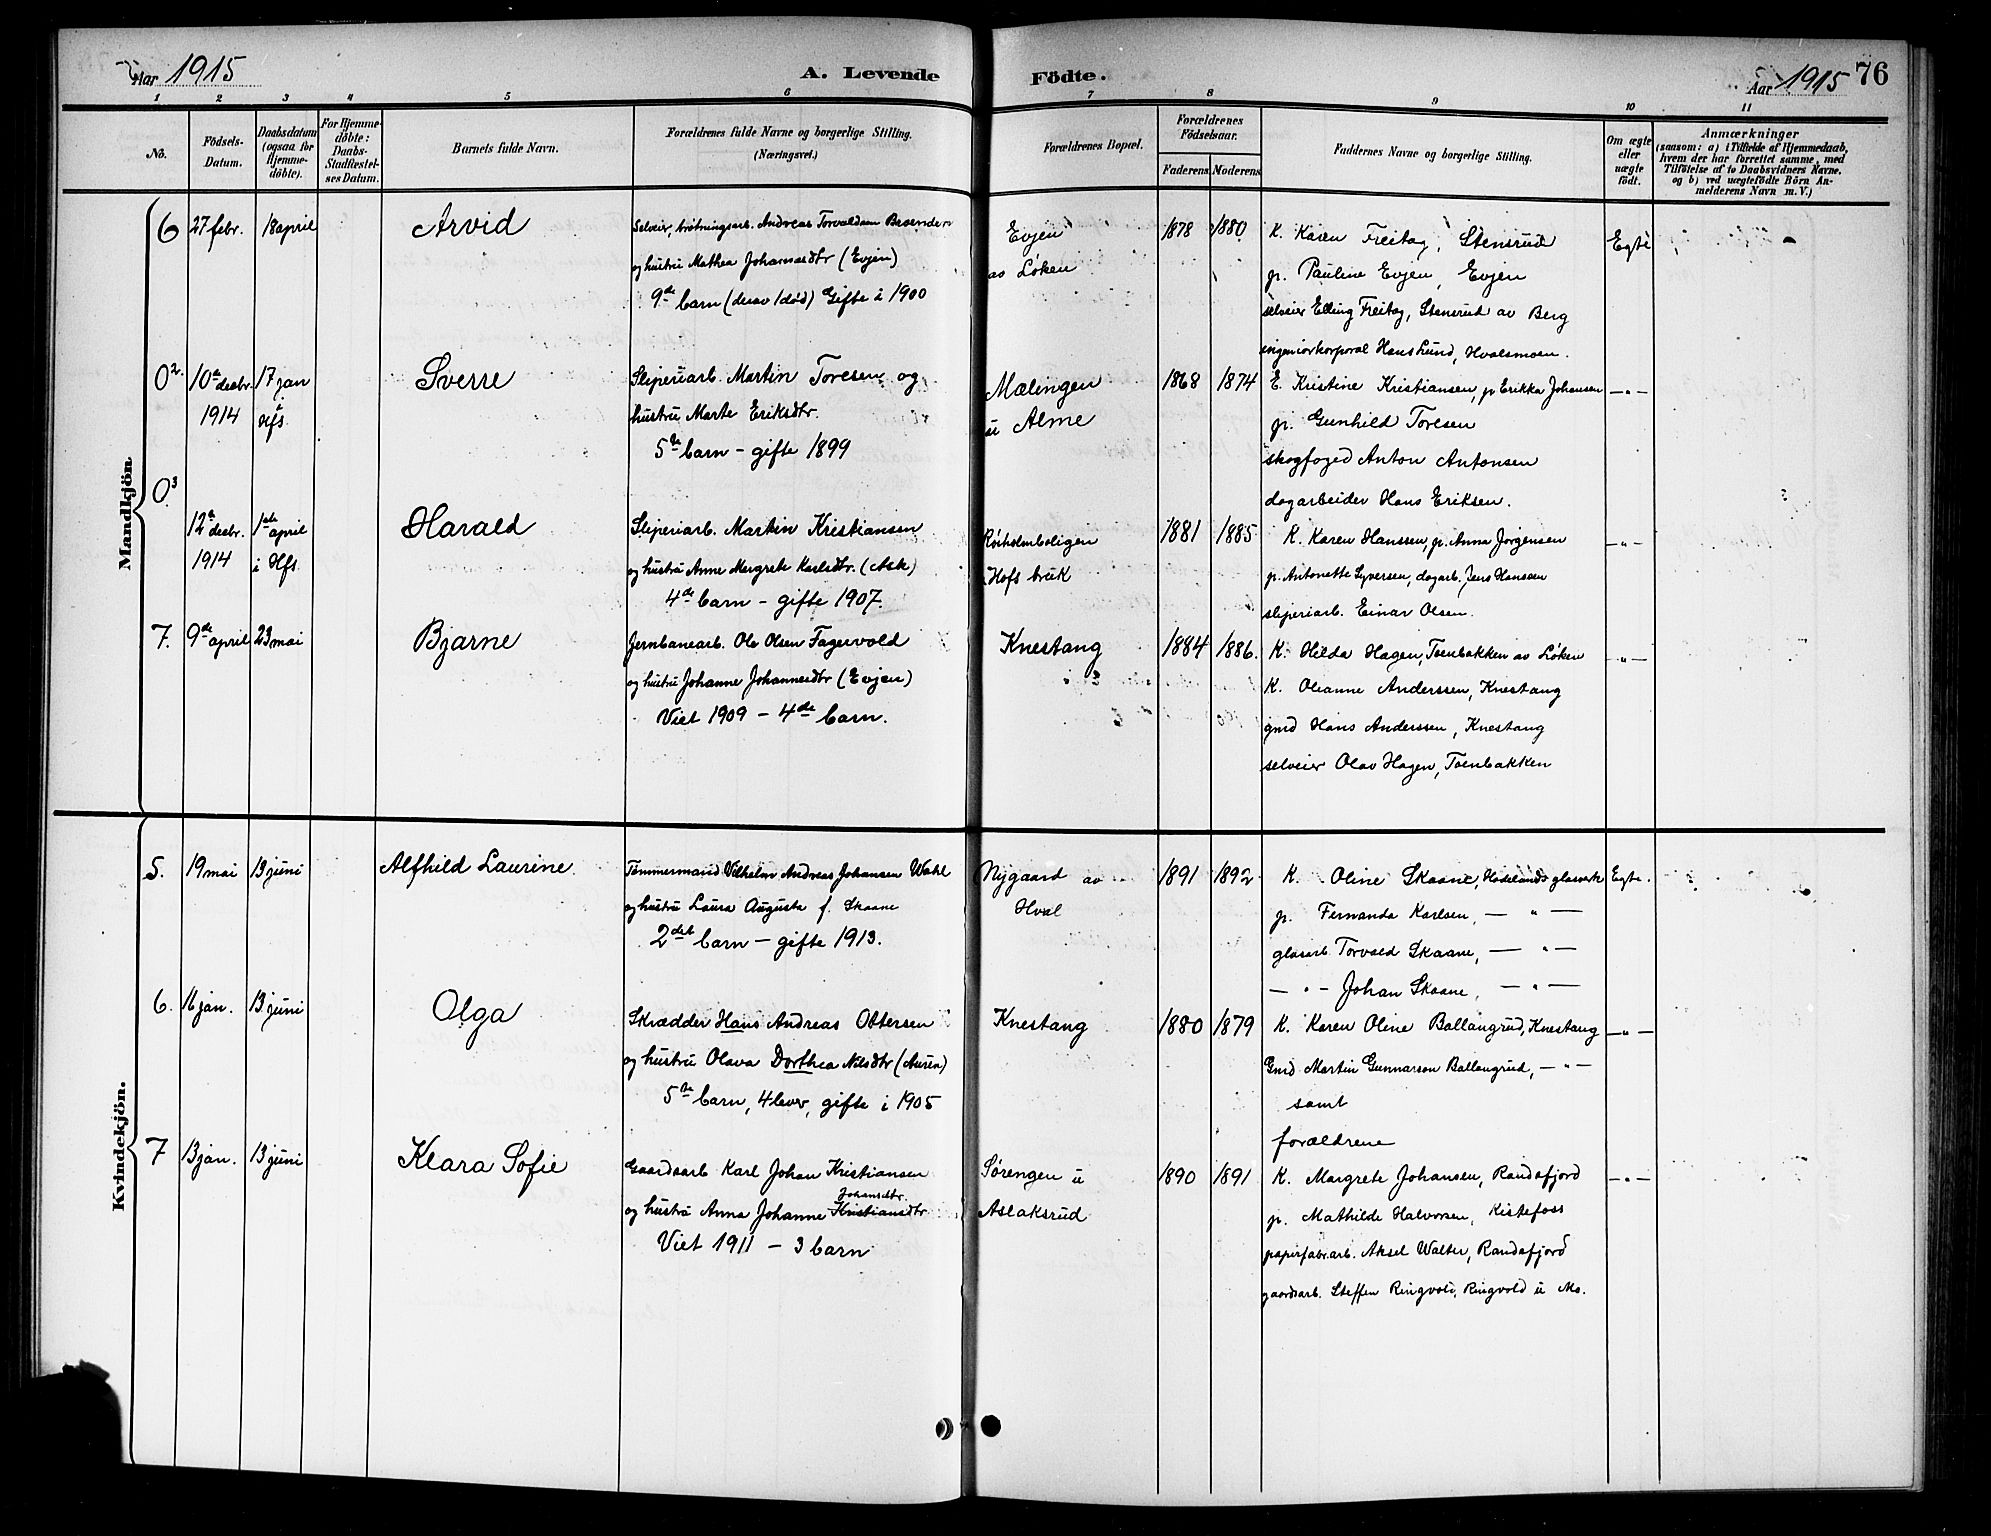 Aar 1915
A. Levende Födte.
Aar 1915 76
1 2 3 4 5 6 7 8 9 10 11
No.
Födsels-Datum.
Daabsdatum (ogsaa for Hjemme-döbte).
For Hjemme-döbte: Daabs-Stadfæstel-ses Datum.
Barnets fulde Navn.
Forældrenes fulde Navne og borgerlige Stilling.
(Næringsvei.)
Forældrenes Bopæl.
Forældrenes Födselsaar.
Faderens Moderens
Faddernes Navne og borgerlige Stilling.
Om ægte eller uægte födt.
Anmærkninger
(saasom: a) i Tilfælde af Hjemmedaab, hvem der har forrettet samme, med Tilföielse af to Daabsvidners Navne. og b) ved uægtefödte Börn An-melderens Navn m. V.)
Mandkjön
6 27 febr. 18 april Arvid
Selveier, brøtningsarb. Andreas Torvaldsen Braenden
og hustru Mathea Johannesdtr (Evjen)
9de barn (derav 1 død) Gifte i 1900
Evjen
av Løken
1878 1880
K. Karen Freitag, Stensrud
p. Pauline Evjen, Evjen
selveier Elling Freitag, Stensrud av Berg
ingeniørkorporal Hans Lund, Hvalsmoen.
Egte
0². 10de decbr. 1914 17 jan i Hfs. Sverre
Sliperiarb. Martin Toresen og
hustru Marte Eriksdtr.
5te barn – gifte 1899
Mælingen
u Alme
1868 1874
E. Kristine Kristiansen, p Erikka Johansen
p. Gunhild Toresen
skogfoged Anton Antonsen
dagarbeider Hans Eriksen.
— " —
0³ 12te decbr. 1914 1ste april i Hfs. Harald
Sliperiarb. Martin Kristiansen
og hustru Anne Margrete Karlsdtr. (Ask)
4de barn – gifte 1907.
Røiholmboligen
Hofs bruk
1881 1885
K. Karen Hanssen, p. Anna Jørgensen
p. Antonette Syversen, dagarb. Jens Hansen
sliperiarb. Einar Olsen.
— " —
7. 9de april 23 mai Bjarne
Jernbanearb. Ole Olsen Fagervold
og hustru Johanne Johannesdtr (Evjen)
Viet 1909 – 4de barn.
Knestang
1884 1886.
K. Hilda Hagen, Toenbakken av Løken
K. Oleanne Anderssen, Knestang
gmd Hans Anderssen, Knestang
selveier Olav Hagen, Toenbakken
— " —
Kvindekjön.
5. 19 mai 13 juni Alfhild Laurine.
Tømmermand Vilhelm Andreas Johansen Wahl
og hustru Laura Augusta f. Skaane
2det barn – gifte 1913.
Nygaard av
Hval
1891 1892
K. Oline Skaane, Hadelands glasverk
p. Fernanda Karlsen, — " —
glasarb. Torvald Skaane, — " —
— " — Johan Skaane, — " —
Egte.
6. 11 jan. 13 juni Olga
Skrædder Hans Andreas Ottersen
og hustru Olava Dorthea Nilsdtr (Auren)
5te barn, 4 lever, gifte i 1905
Knestang
1880 1879
K. Karen Oline Ballangrud, Knestang
Gmd. Martin Gunnarson Ballangrud, — " —
samt
forældrene
— " —
7 13 jan. 13 juni Klara Sofie
Gaardsarb Karl Johan Kristiansen
og hustru Anna Johanne Kristiansdtr Johansdtr.
Viet 1911 – 3 barn
Sørengen u
Aslaksrud
1890 1891
K. Margrete Johansen, Randsfjord
p. Mathilde Halvorsen, Kistefoss
papirfabr.arb. Aksel Walter, Randsfjord
gaardsarb. Steffen Ringvold, Ringvold u Mo.
— " —